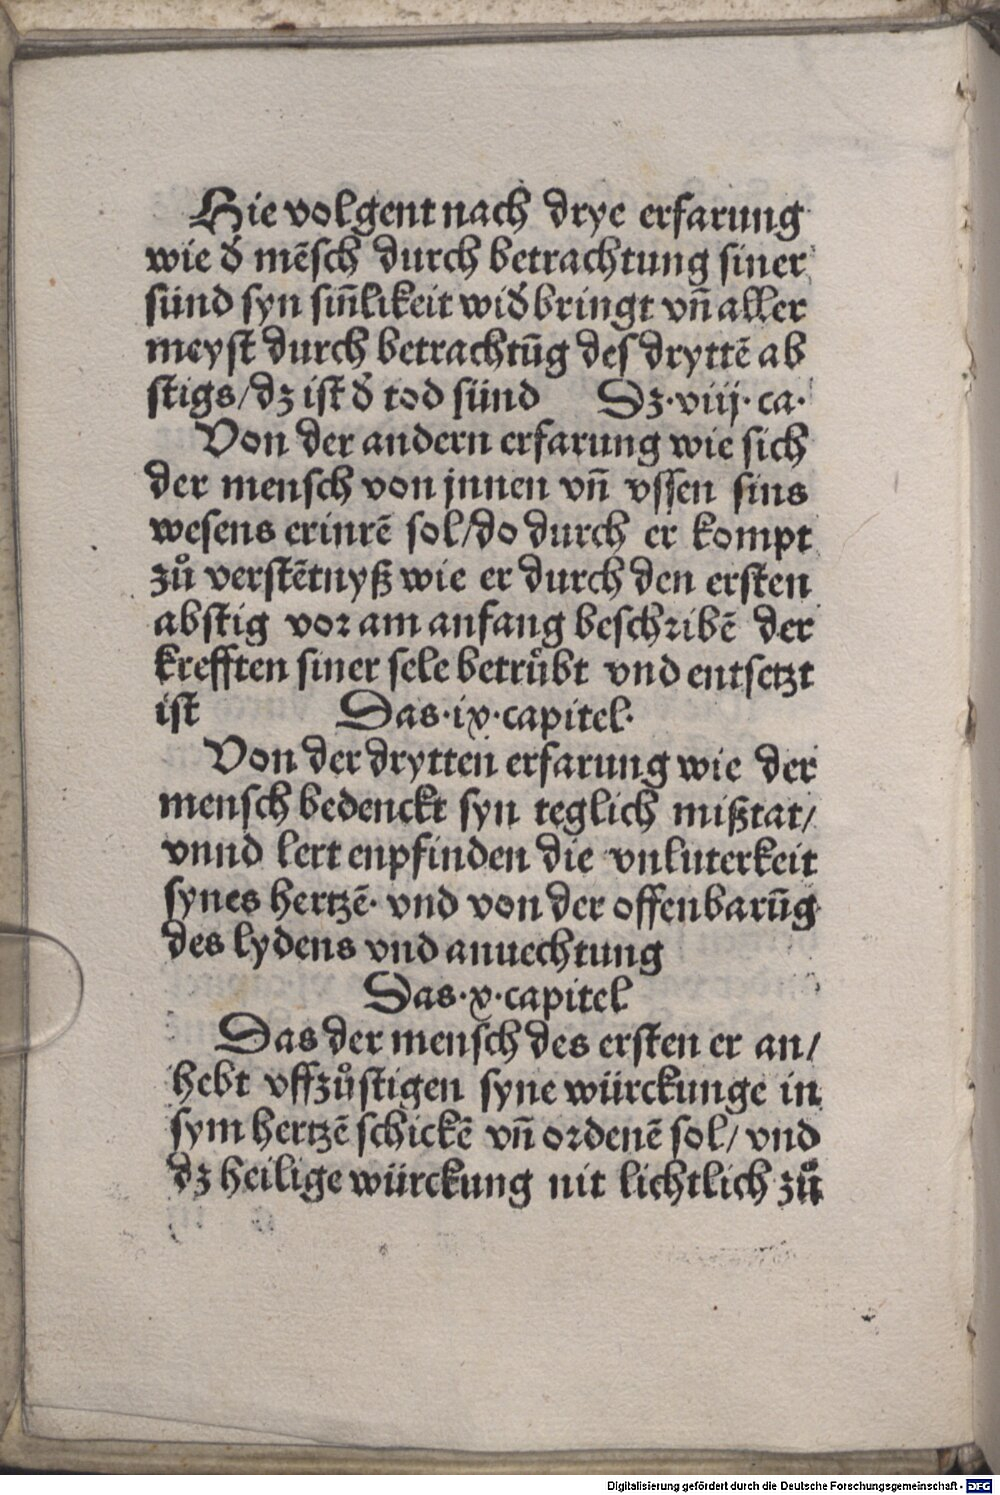 Hie volgent nach drye erfarung
wie d̕ mēsch durch betrachtung siner
sünd syn siñlikeit wid̕bringt vñ aller
meyst durch betrachtūg des dryttē ab
stigs/dz ist d̕ tod sünd Dz·viij·ca·
Von der andern erfarung wie sich
der mensch von jnnen vñ vssen sins
wesens erinrē sol/do durch er kompt
zů verstētnyß wie er durch den ersten
abstig vor am anfang beschribē der
krefften siner sele betrůbt vnd entsetzt
ist Das·ix·capitel·
Von der drytten erfarung wie der
mensch bedenckt syn teglich mißtat/
vnnd lert enpfinden die vnluterkeit
synes hertzē· vnd von der offenbarūg
des lydens vnd anuechtung
Das·x·capitel
Das der mensch des ersten er an/
hebt vffzůstigen syne würckunge in
sym hertzē schickē vñ ordenē sol/ vnd
dz heilige würckung nit lichtlich zů
Digitalisierung gefördert durch die Deutsche Forschungsgemeinschaft - DFG